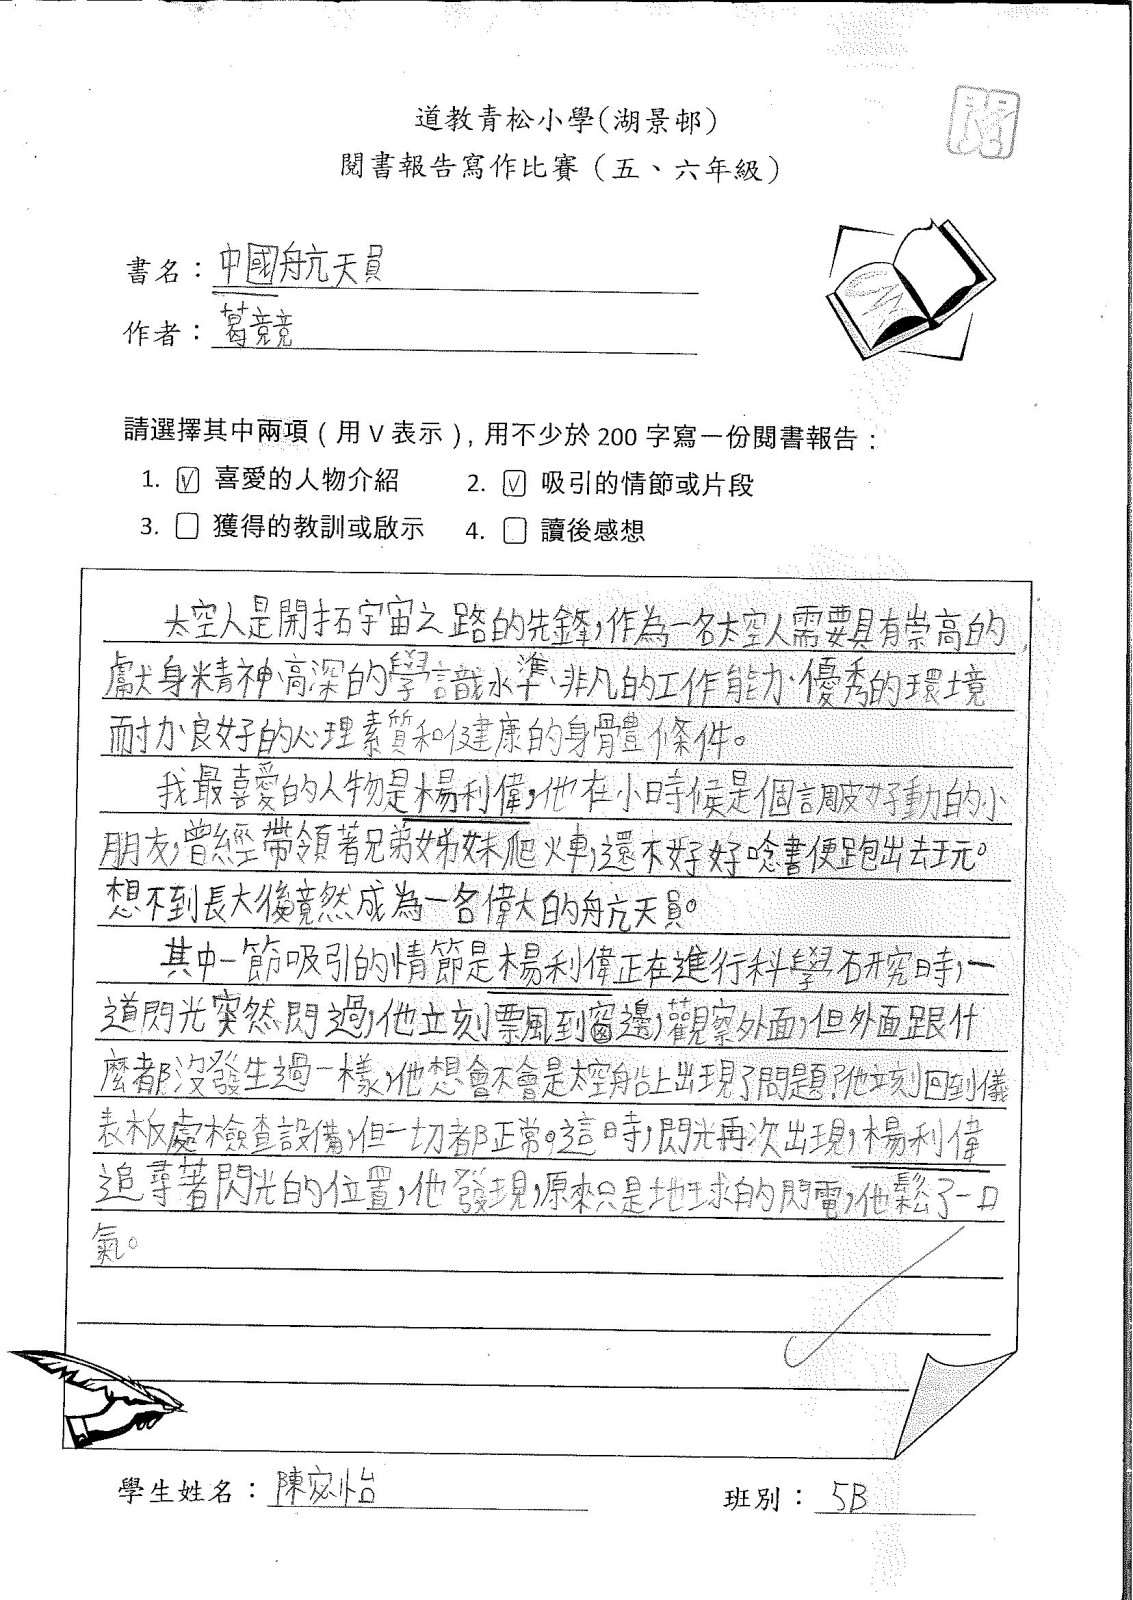 閱
道教青松小學(湖景邨)
閱書報告寫作比賽(五、六年級)
書名：中國航天員
作者：葛競競
請選擇其中兩項(用V表示)，用不少於200字寫一份閱書報告：
1. V 喜愛的人物介紹 2. V 吸引的情節或片段
3. 獲得的教訓或啟示 4. 讀後感想
太空人是開拓宇宙之路的先鋒，作為一名太空人需要具有崇高的
獻身精神、高深的學識水準、非凡的工作能力、優秀的環境
耐力、良好的心理素質和健康的身體條件。
我最喜愛的人物是楊利偉，他在小時候是個調皮好動的小
朋友，曾經帶領著兄弟姊妹爬火車，還未好好唸書便跑出去玩。
想不到長大後竟然成為一名偉大的航天員。
其中一節吸引的情節是楊利偉正在進行科學研究時，一
道閃光突然閃過，他立刻飄到窗邊，觀察外面，但外面跟什
麼都沒發生過一樣，他想會不會是太空船上出現了問題？他立刻回到儀
表板處檢查設備，但一切都正常。這時，閃光再次出現，楊利偉
追尋著閃光的位置，他發現，原來只是地球的閃電，他鬆了一口
氣。
學生姓名：陳宓怡 班別：5B